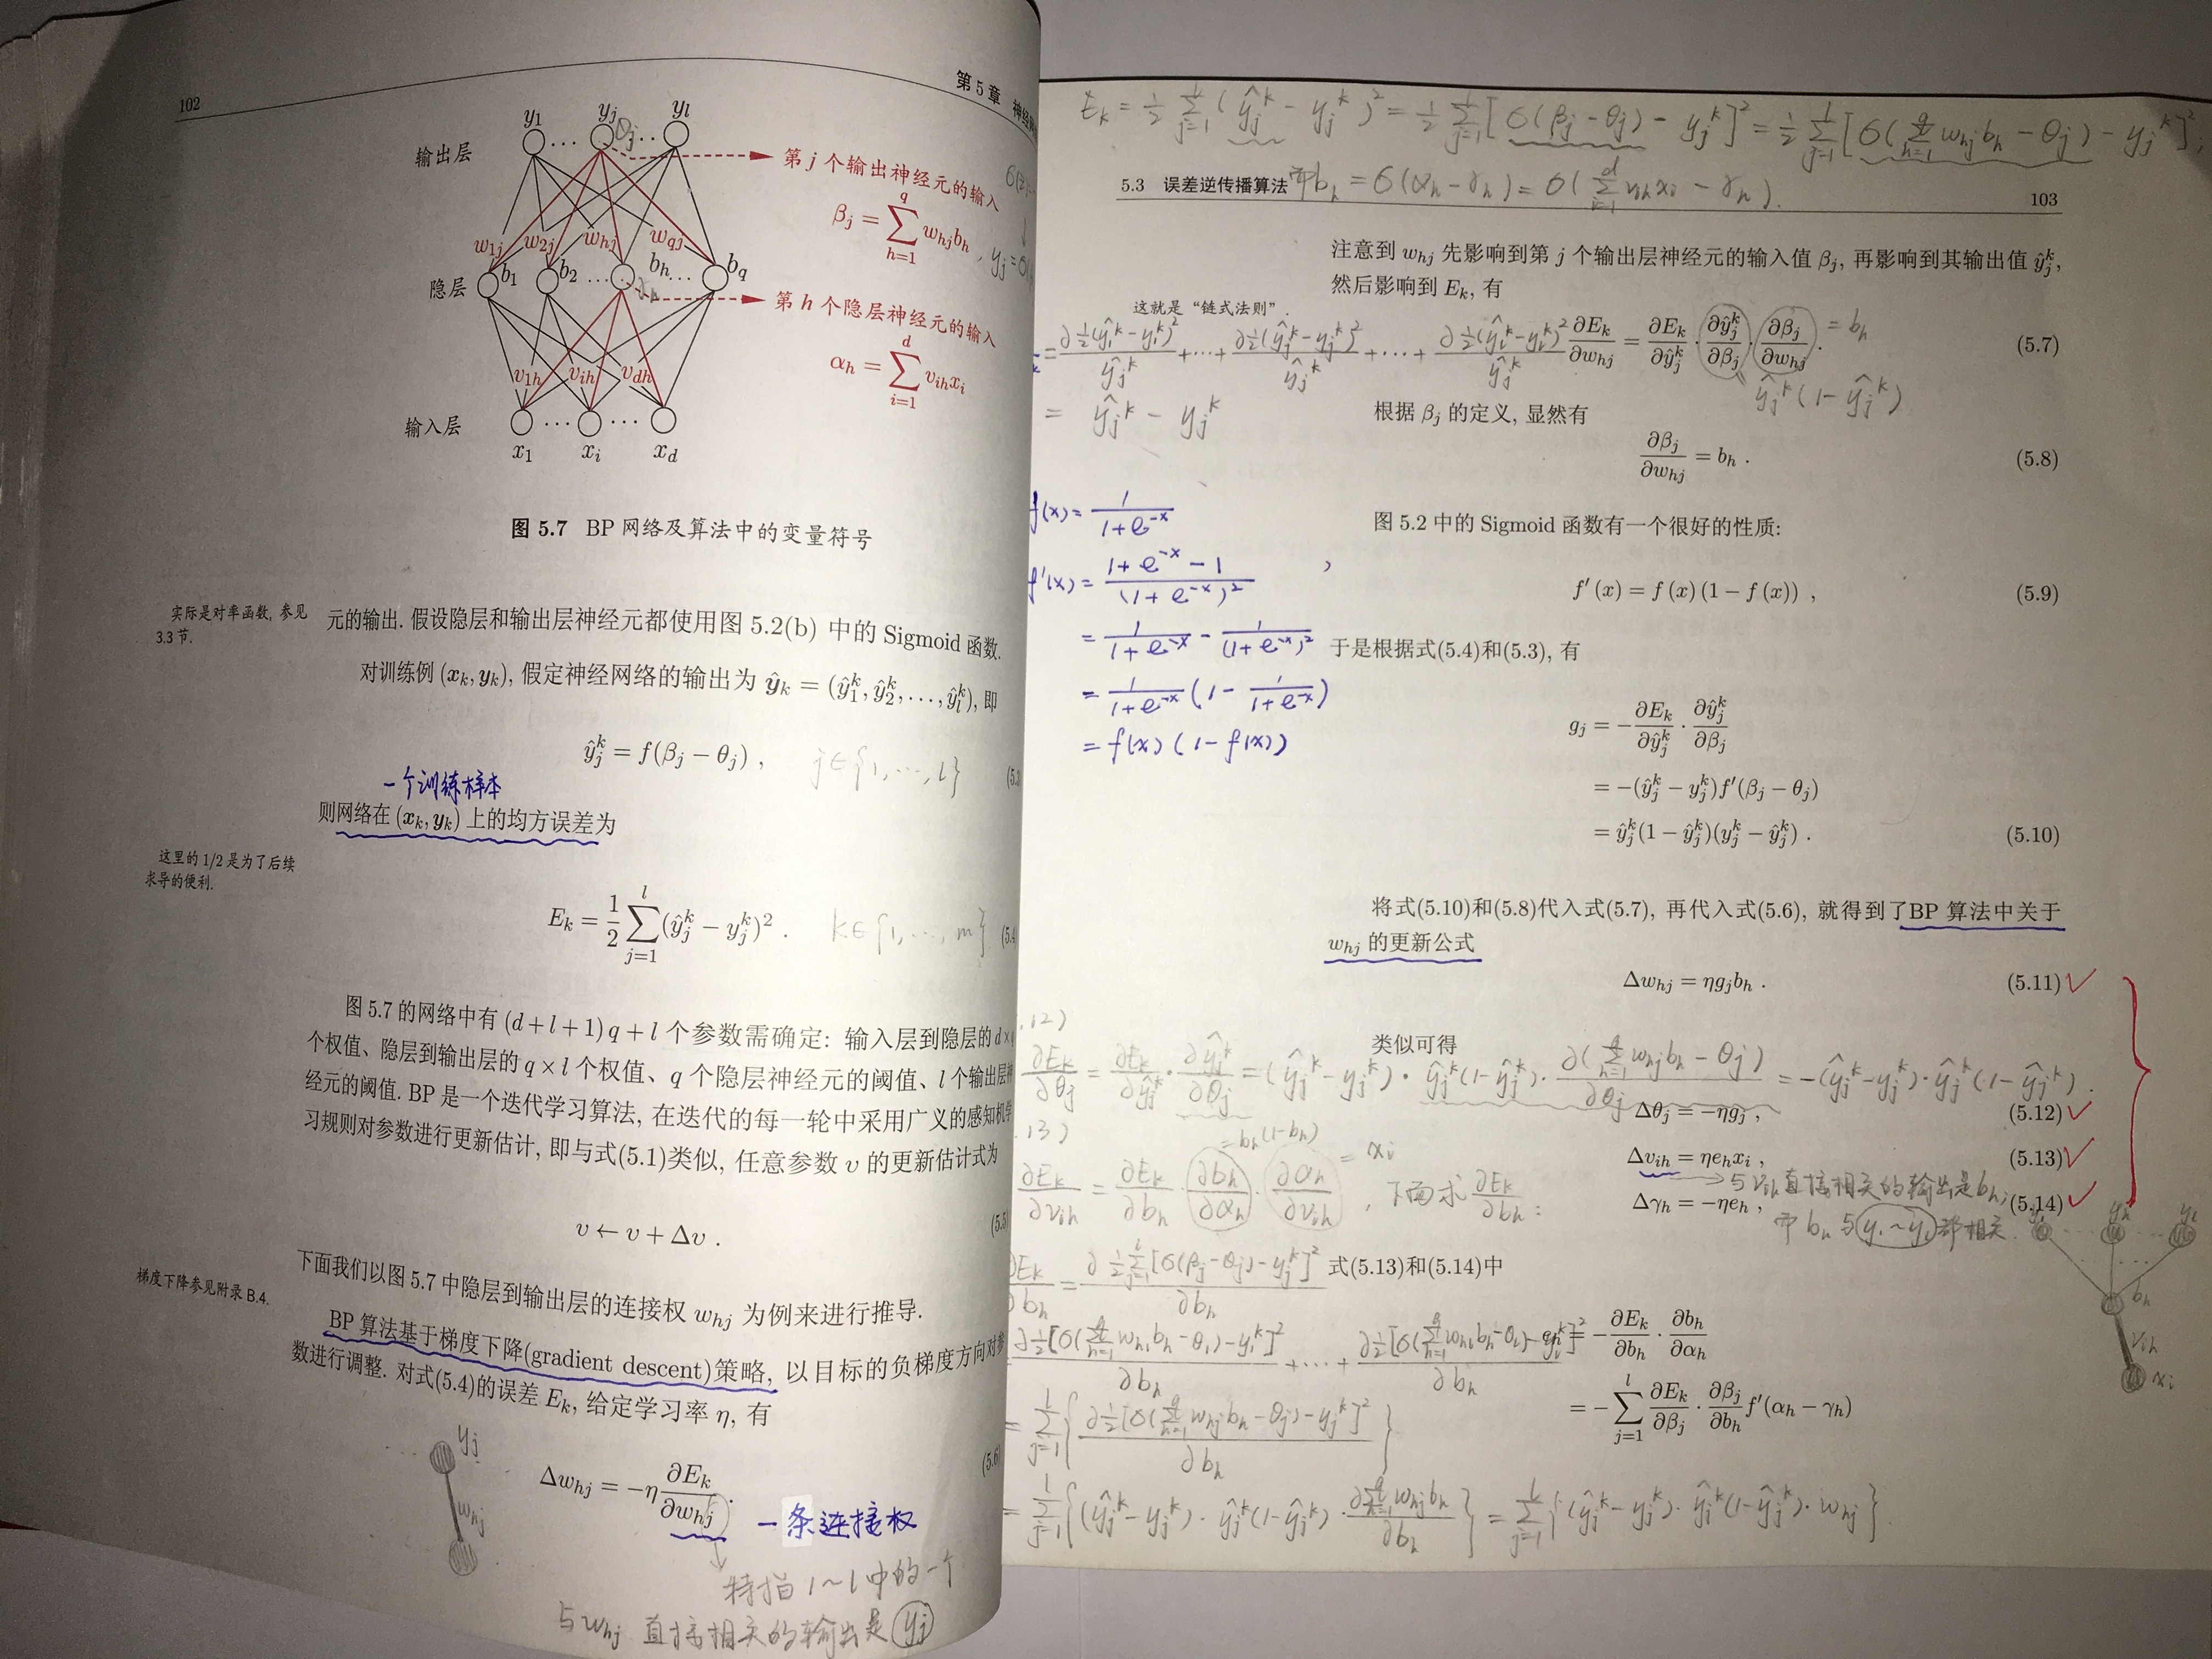 102
第 5 章 神经网
y₁ yⱼ yₗ
θⱼ
输出层
第 j 个输出神经元的输入
βⱼ = ∑_{h=1}^{q} w_{hj}b_h
w_{1j} w_{2j} w_{hj} w_{qj}
隐层 b₁ b₂ b_h b_q
第 h 个隐层神经元的输入
α_h = ∑_{i=1}^{d} v_{ih}x_i
v_{1h} v_{ih} v_{dh}
输入层
x₁ x_i x_d
图 5.7 BP 网络及算法中的变量符号
实际是对率函数, 参见
3.3 节.
元的输出. 假设隐层和输出层神经元都使用图 5.2(b) 中的 Sigmoid 函数.
对训练例 (x_k, y_k), 假定神经网络的输出为 ŷ_k = (ŷ₁ᵏ, ŷ₂ᵏ, ..., ŷₗᵏ), 即
ŷⱼᵏ = f(βⱼ − θⱼ) , j∈{1, ..., l} (5.3
一个训练样本
则网络在 (x_k, y_k) 上的均方误差为
这里的 1/2 是为了后续
求导的便利.
E_k = 1/2 ∑_{j=1}^{l} (ŷⱼᵏ − yⱼᵏ)² . k∈{1, ..., m} (5.4
图 5.7 的网络中有 (d+l+1)q+l 个参数需确定: 输入层到隐层的 d×q
个权值、隐层到输出层的 q×l 个权值、q 个隐层神经元的阈值、l 个输出层神
经元的阈值. BP 是一个迭代学习算法, 在迭代的每一轮中采用广义的感知机学
习规则对参数进行更新估计, 即与式(5.1)类似, 任意参数 v 的更新估计式为
v ← v + Δv . (5.5
下面我们以图 5.7 中隐层到输出层的连接权 w_{hj} 为例来进行推导.
梯度下降参见附录 B.4.
BP 算法基于梯度下降(gradient descent)策略, 以目标的负梯度方向对参
数进行调整. 对式(5.4)的误差 E_k, 给定学习率 η, 有
yⱼ
w_{hj}
Δw_{hj} = −η ∂E_k/∂w_{hj} . (5.6
一条连接权
特指 1~l 中的一个
与 w_{hj} 直接相关的输出是 yⱼ
E_k = 1/2 ∑_{j=1}^{l} (ŷⱼᵏ − yⱼᵏ)² = 1/2 ∑_{j=1}^{l} [σ(βⱼ − θⱼ) − yⱼᵏ]² = 1/2 ∑_{j=1}^{l} [σ(∑_{h=1}^{q} w_{hj}b_h − θⱼ) − yⱼᵏ]²,
5.3 误差逆传播算法 103
而 b_h = σ(α_h − γ_h) = σ(∑_{i=1}^{d} v_{ih}x_i − γ_h).
注意到 w_{hj} 先影响到第 j 个输出层神经元的输入值 βⱼ, 再影响到其输出值 ŷⱼᵏ,
然后影响到 E_k, 有
这就是“链式法则”.
= ∂1/2(ŷ₁ᵏ − y₁ᵏ)²/ŷⱼᵏ + ... + ∂1/2(ŷⱼᵏ − yⱼᵏ)²/ŷⱼᵏ + ... + ∂1/2(ŷₗᵏ − yₗᵏ)²/ŷⱼᵏ
∂E_k/∂w_{hj} = ∂E_k/∂ŷⱼᵏ · ∂ŷⱼᵏ/∂βⱼ · ∂βⱼ/∂w_{hj} . (5.7)
= b_h
ŷⱼᵏ(1 − ŷⱼᵏ)
= ŷⱼᵏ − yⱼᵏ
根据 βⱼ 的定义, 显然有
∂βⱼ/∂w_{hj} = b_h . (5.8)
f(x) = 1/(1+e⁻ˣ)
f'(x) = (1+e⁻ˣ − 1)/(1+e⁻ˣ)²
= 1/(1+e⁻ˣ) − 1/(1+e⁻ˣ)²
= 1/(1+e⁻ˣ) (1 − 1/(1+e⁻ˣ))
= f(x)(1−f(x))
图 5.2 中的 Sigmoid 函数有一个很好的性质:
f'(x) = f(x)(1 − f(x)) , (5.9)
于是根据式(5.4)和(5.3), 有
gⱼ = −∂E_k/∂ŷⱼᵏ · ∂ŷⱼᵏ/∂βⱼ
= −(ŷⱼᵏ − yⱼᵏ)f'(βⱼ − θⱼ)
= ŷⱼᵏ(1 − ŷⱼᵏ)(yⱼᵏ − ŷⱼᵏ) . (5.10)
将式(5.10)和(5.8)代入式(5.7), 再代入式(5.6), 就得到了BP 算法中关于
w_{hj} 的更新公式
Δw_{hj} = ηgⱼb_h . (5.11)
.12)
类似可得
∂E_k/∂θⱼ = ∂E_k/∂ŷⱼᵏ · ∂ŷⱼᵏ/∂θⱼ = (ŷⱼᵏ − yⱼᵏ) · ŷⱼᵏ(1−ŷⱼᵏ) · ∂(∑_{h=1}^{q} w_{hj}b_h − θⱼ)/∂θⱼ = −(ŷⱼᵏ − yⱼᵏ) · ŷⱼᵏ(1−ŷⱼᵏ) .
Δθⱼ = −ηgⱼ , (5.12)
.13)
Δv_{ih} = ηe_hx_i , (5.13)
Δγ_h = −ηe_h , (5.14)
与 v_{ih} 直接相关的输出是 b_h,
而 b_h 与 y₁~yₗ 都相关.
∂E_k/∂v_{ih} = ∂E_k/∂b_h · ∂b_h/∂α_h · ∂α_h/∂v_{ih} , 下面求 ∂E_k/∂b_h :
= b_h(1−b_h)
= x_i
∂E_k/∂b_h = ∂ 1/2 ∑_{j=1}^{l} [σ(βⱼ−θⱼ) − yⱼᵏ]²/∂b_h
式(5.13)和(5.14)中
∂1/2[σ(∑_{h=1}^{q} w_{h1}b_h − θ₁) − y₁ᵏ]²/∂b_h + ... + ∂1/2[σ(∑_{h=1}^{q} w_{hl}b_h − θₗ) − yₗᵏ]²/∂b_h
= −∂E_k/∂b_h · ∂b_h/∂α_h
= −∑_{j=1}^{l} ∂E_k/∂βⱼ · ∂βⱼ/∂b_h f'(α_h − γ_h)
= ∑_{j=1}^{l} {∂1/2[σ(∑_{h=1}^{q} w_{hj}b_h − θⱼ) − yⱼᵏ]²/∂b_h}
= ∑_{j=1}^{l} {(ŷⱼᵏ − yⱼᵏ) · ŷⱼᵏ(1−ŷⱼᵏ) · ∂∑_{h=1}^{q} w_{hj}b_h/∂b_h} = ∑_{j=1}^{l} {(ŷⱼᵏ − yⱼᵏ) · ŷⱼᵏ(1−ŷⱼᵏ) · w_{hj}}
b_h
v_{ih}
x_i